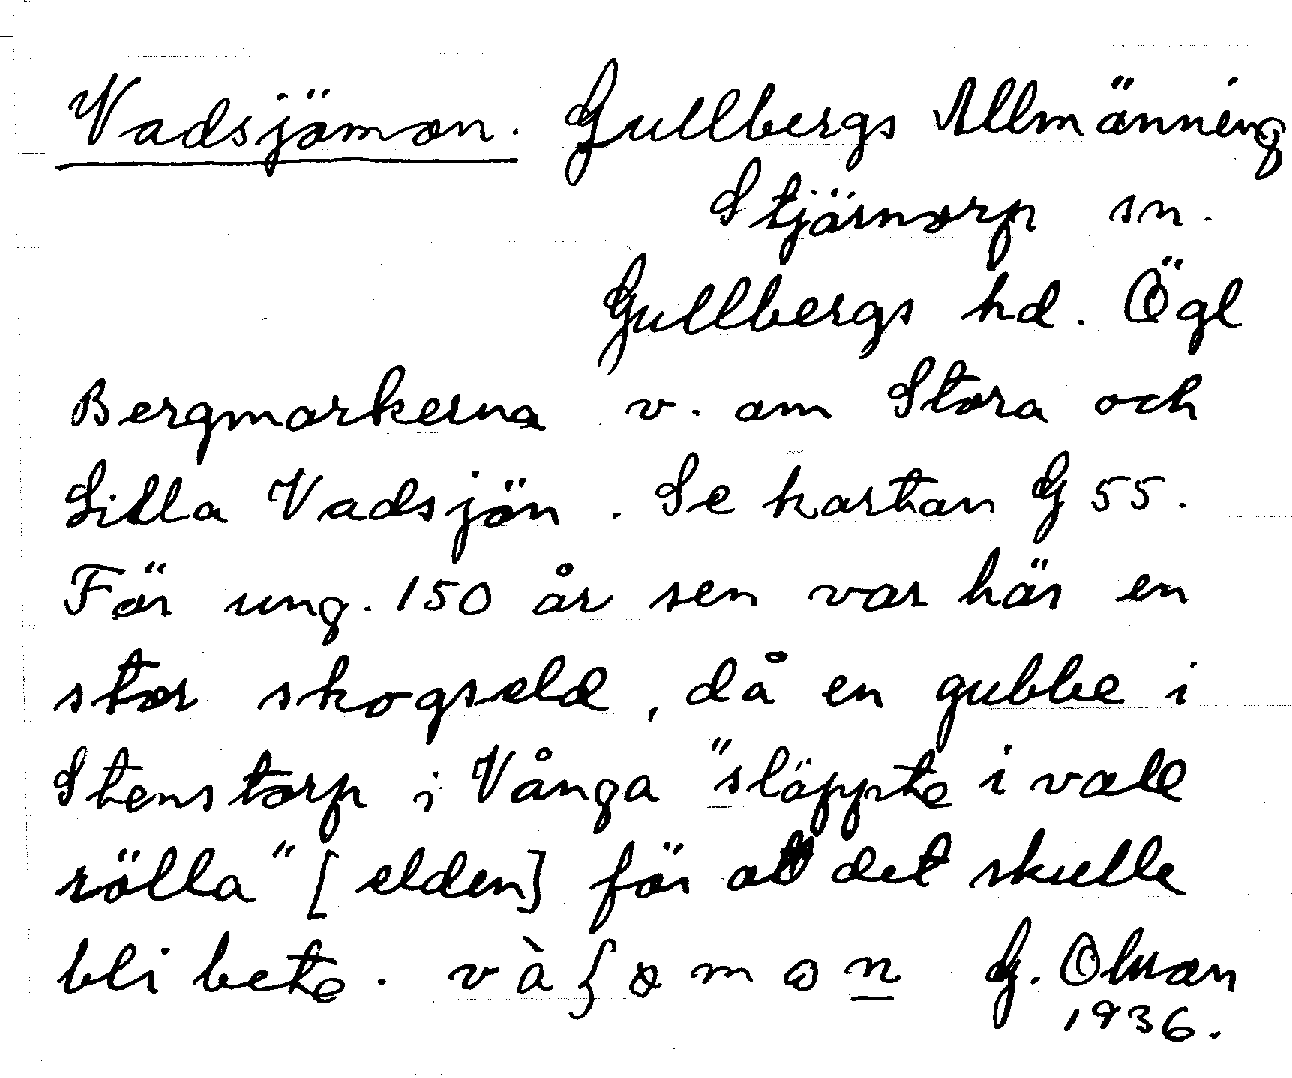 Vadsjömon. Gullbergs Allmänning
Stjärnorp sn.
Gullbergs hd. Ögl
Bergmarkerna v. om Stora och
Lilla Vadsjön. Se kartan G 55.
För ung. 150 år sen var här en
stor skogseld, då en gubbe i
Stenstorp i Vånga "släppte i vall
rölla" [elden] för att det skulle
bli bete. G. Olson
1936.